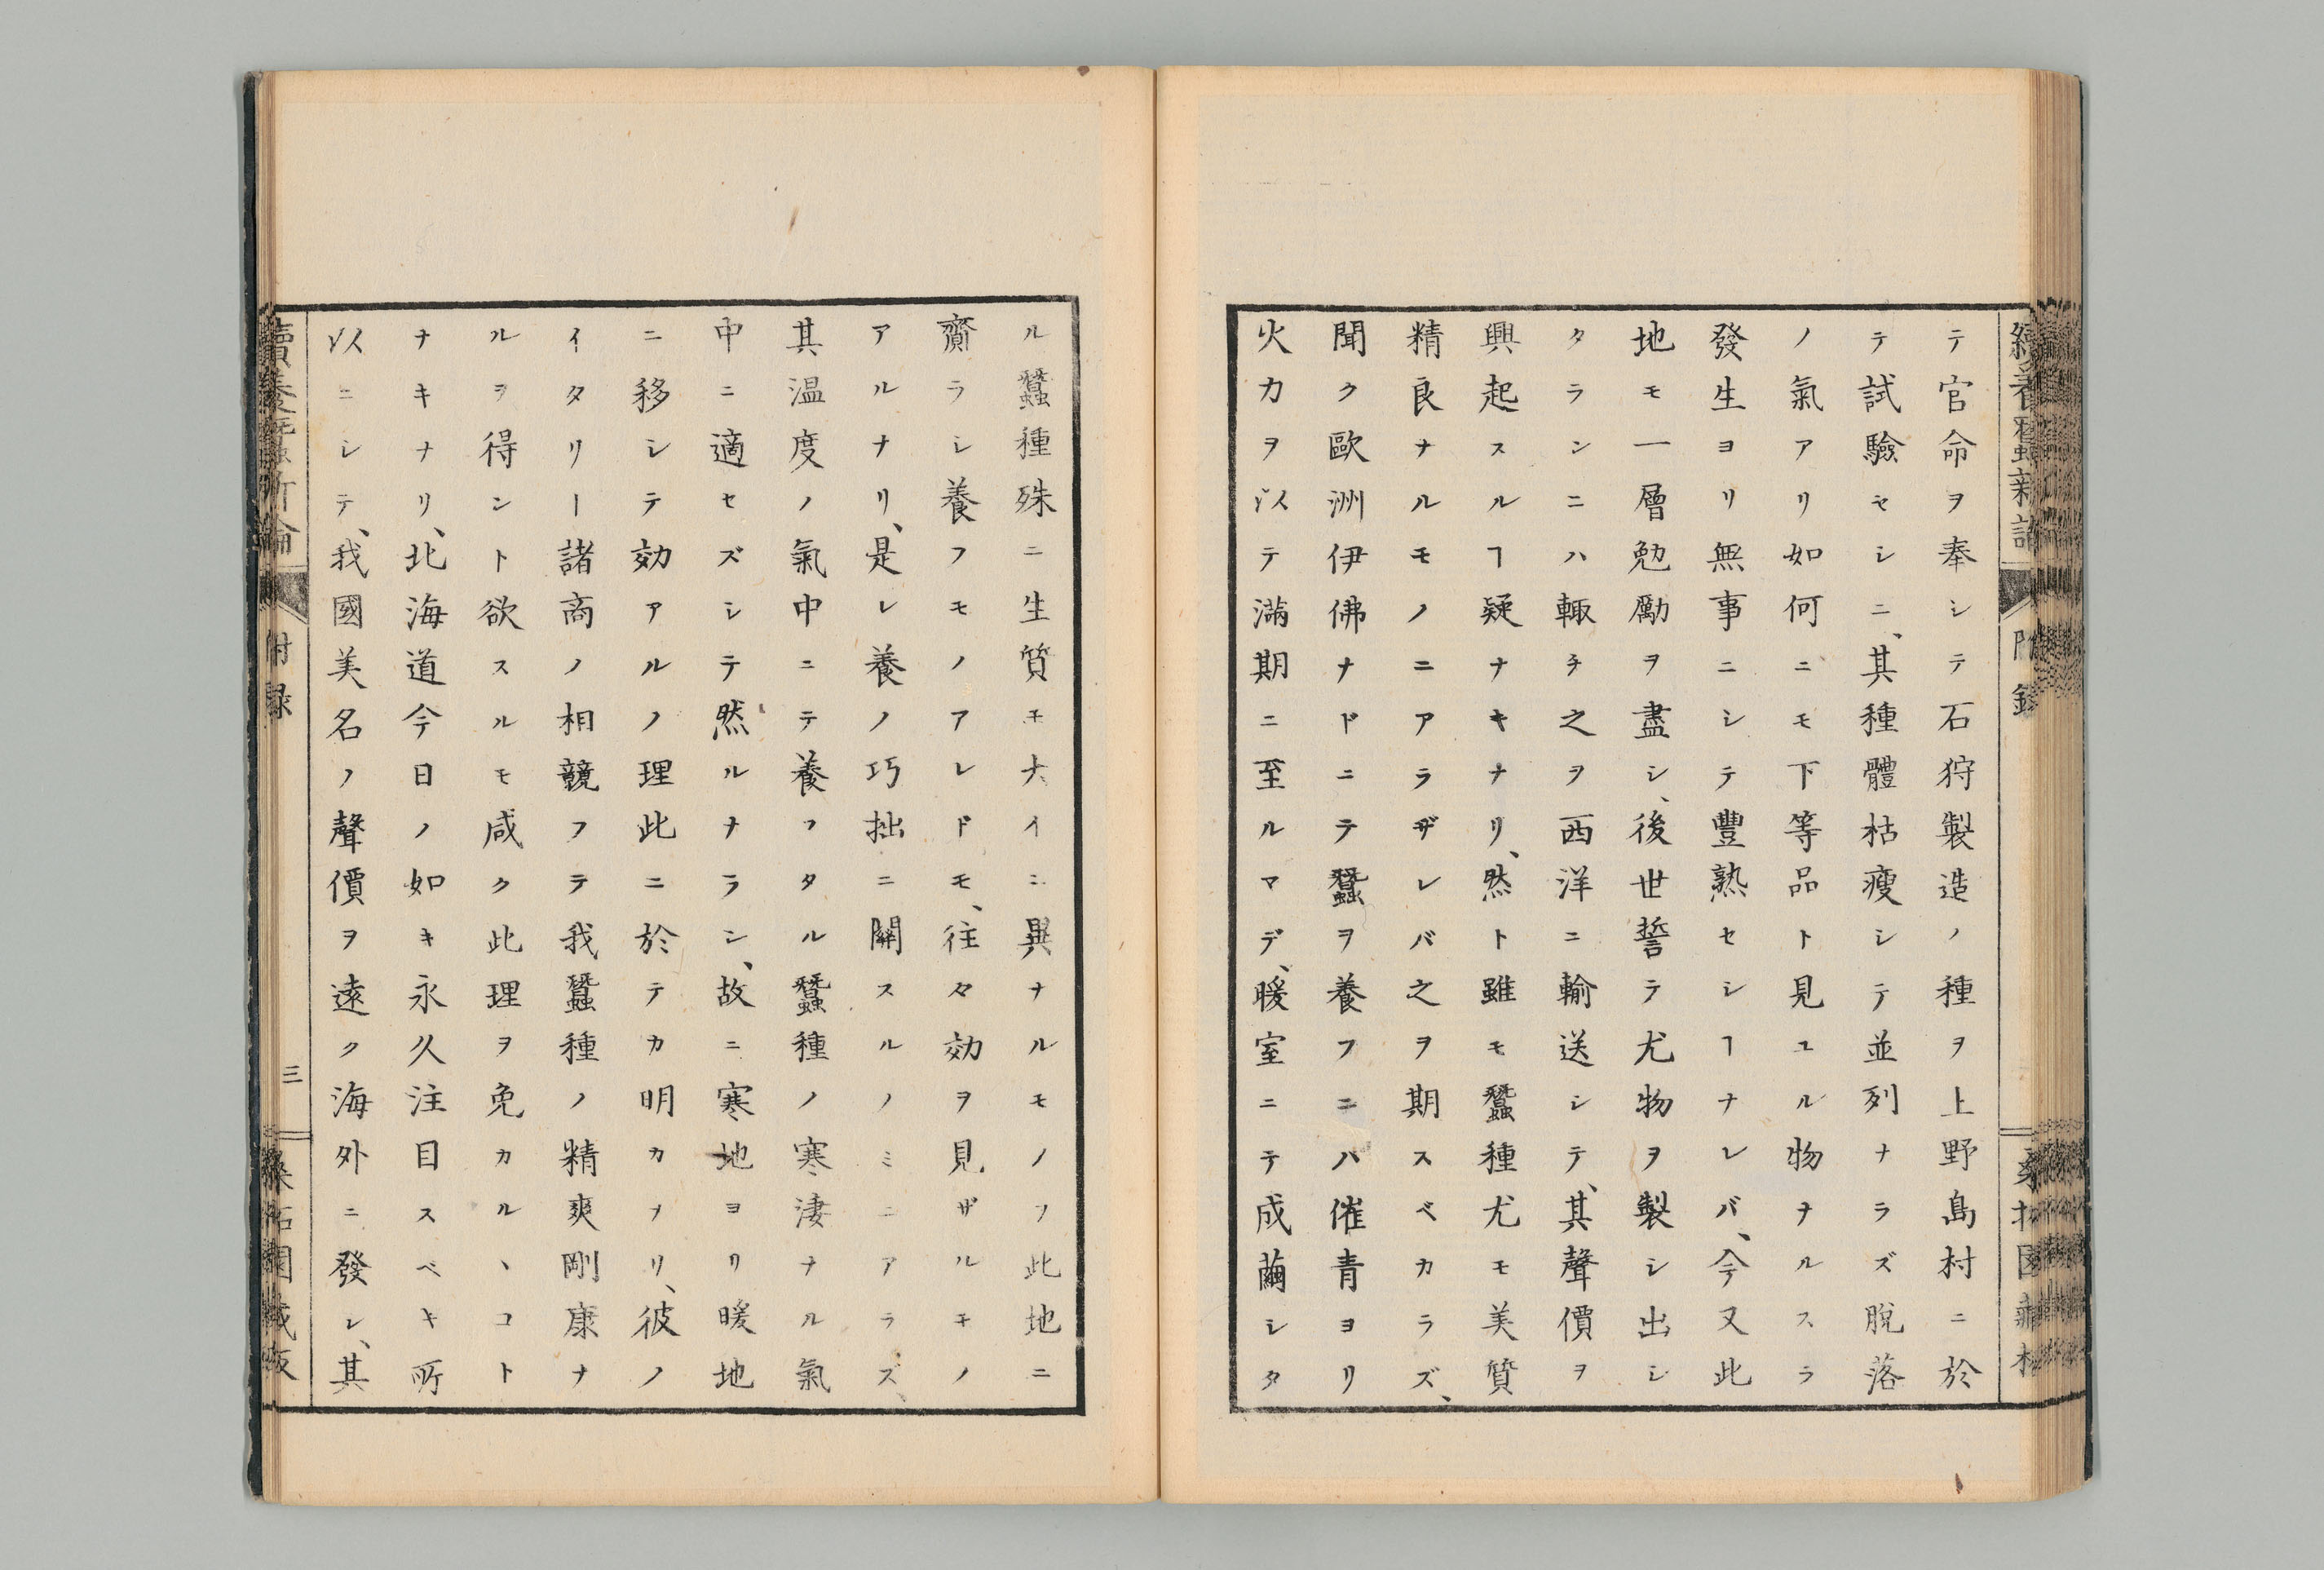 テ官命ヲ奉シテ石狩製造ノ種ヲ上野島村ニ於
テ試驗セシニ、其種體枯瘦シテ並列ナラズ脱落
ノ氣アリ如何ニモ下等品ト見ユル物ナルスラ
發生ヨリ無事ニシテ豐熟セシヿナレバ、今又此
地モ一層勉勵ヲ盡シ、後世誓テ尤物ヲ製シ出シ
タランニハ輙チ之ヲ西洋ニ輸送シテ、其聲價ヲ
興起スルヿ疑ナキナリ、然ト雖モ蠶種尤モ美質
精良ナルモノニアラザレバ之ヲ期スベカラズ、
聞ク歐洲伊佛ナドニテ蠶ヲ養フニハ催青ヨリ
火力ヲ以テ滿期ニ至ルマデ、暖室ニテ成繭シタ
ル蠶種殊ニ生質モ大イニ異ナルモノヲ此地ニ
齎ラシ養フモノアレドモ、往々効ヲ見ザルモノ
アルナリ、是レ養ノ巧拙ニ關スルノミニアラズ、
其温度ノ氣中ニテ養フタル蠶種ノ寒淒ナル氣
中ニ適セズシテ然ルナラン、故ニ寒地ヨリ暖地
ニ移シテ効アルノ理此ニ於テカ明カナリ、彼ノ
イタリー諸商ノ相競フテ我蠶種ノ精爽剛康ナ
ルヲ得ント欲スルモ咸ク此理ヲ免カルヽコト
ナキナリ、北海道今日ノ如キ永久注目スベキ所
以ニシテ、我國美名ノ聲價ヲ遠ク海外ニ發シ、其
續養蠶新論 附録 三